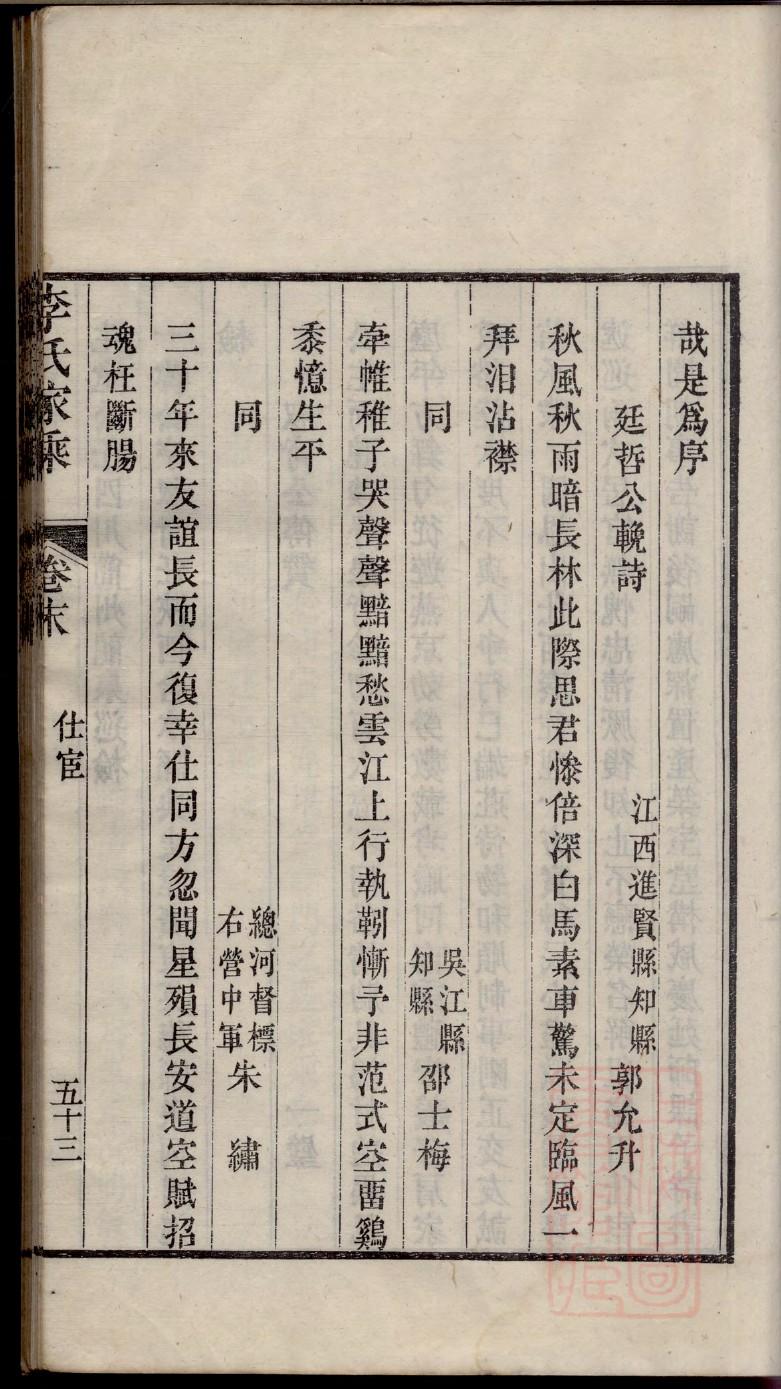 哉是爲序
廷哲公輓詩
江西進賢縣知縣
郭允升
秋風秋雨暗長林此際思君慘倍深白馬素車驚未定臨風一
拜泪沾襟
同
吳江縣
知縣
邵士梅
牽帷稚子哭聲聲黯黯愁雲江上行執靷慚予非范式空畱鷄
黍憶生平
同
總河督標
右營中軍
朱繡
三十年來友誼長而今復幸仕同方忽聞星殞長安道空賦招
魂枉斷腸
李氏家乘
卷末
仕宦
五十三